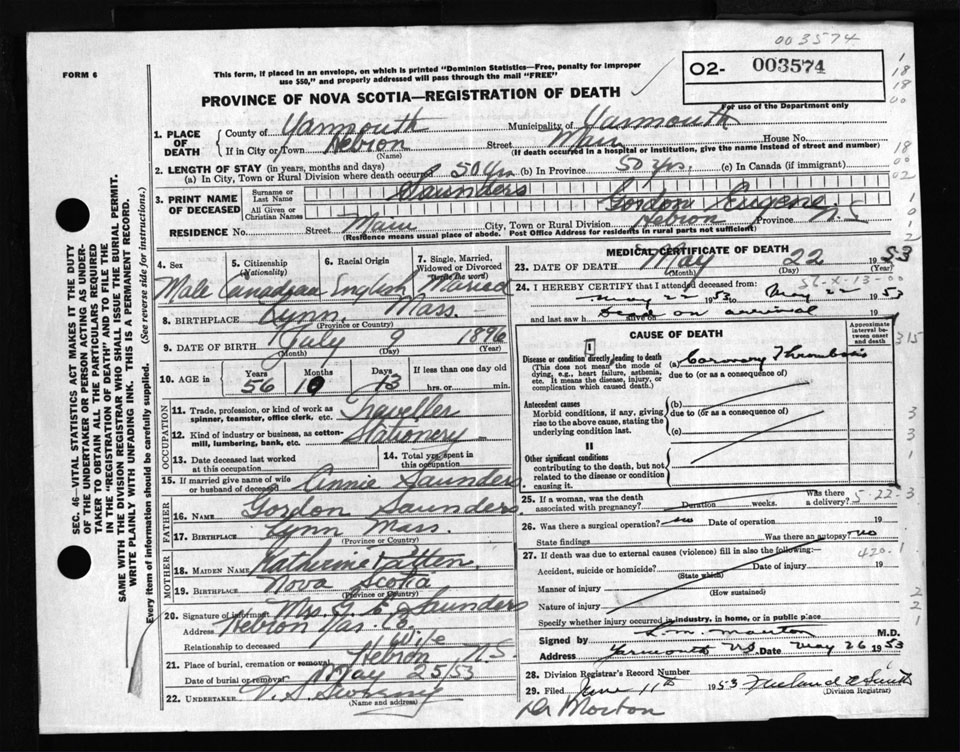 003574
FORM 6
This form, if placed in an envelope, on which is printed "Dominion Statistics—Free, penalty for improper
use $50," and properly addressed will pass through the mail "FREE"
O2- 003574
For use of the Department only
PROVINCE OF NOVA SCOTIA—REGISTRATION OF DEATH
1. PLACE OF DEATH
County of Yarmouth Municipality of Yarmouth
If in City or Town Hebron Street Main House No.
(Name) (If death occurred in a hospital or institution, give the name instead of street and number)
2. LENGTH OF STAY (in years, months and days)
(a) In City, Town or Rural Division where death occurred 50 Yrs. (b) In Province 50 yrs. (c) In Canada (if immigrant)
3. PRINT NAME OF DECEASED
Surname or Last Name Saunders
All Given or Christian Names Gordon Eugene
RESIDENCE No. Street Main City, Town or Rural Division Hebron Province N.S
(Residence means usual place of abode. Post Office Address for residents in rural parts not sufficient)
4. Sex 5. Citizenship (Nationality) 6. Racial Origin 7. Single, Married, Widowed or Divorced (Write the word)
Male Canadian English Married
8. BIRTHPLACE Lynn, Mass.
(Province or Country)
9. DATE OF BIRTH July 9 1896
(Month) (Day) (Year)
10. AGE in Years Months Days If less than one day old
56 10 13 hrs. or min.
OCCUPATION
11. Trade, profession, or kind of work as spinner, teamster, office clerk, etc. Traveller
12. Kind of industry or business, as cotton-mill, lumbering, bank, etc. Stationery
13. Date deceased last worked at this occupation
14. Total yrs. spent in this occupation
15. If married give name of wife or husband of deceased Annie Saunders
FATHER
16. NAME Gordon Saunders
17. BIRTHPLACE Lynn Mass.
(Province or Country)
MOTHER
18. MAIDEN NAME Katherine Patten
19. BIRTHPLACE Nova Scotia
(Province or Country)
20. Signature of informant Mrs. G. E. Saunders
Address Hebron Yar. Co.
Relationship to deceased Wife
21. Place of burial, cremation or removal Hebron N.S.
Date of burial or removal May 25/53
22. UNDERTAKER V. S. Sweeny
MEDICAL CERTIFICATE OF DEATH
23. DATE OF DEATH May 22 1953
(Month) (Day) (Year)
24. I HEREBY CERTIFY that I attended deceased from:
May 22 1953 to May 22 1953
and last saw h alive on Dead on arrival 19
CAUSE OF DEATH
Approximate interval between onset and death
I
Disease or condition directly leading to death (a) Coronary Thrombosis
(This does not mean the mode of dying, e.g., heart failure, asthenia, etc. It means the disease, injury, or complication which caused death).
due to (or as a consequence of)
Antecedent causes (b)
Morbid conditions, if any, giving rise to the above cause, stating the underlying condition last.
due to (or as a consequence of)
(c)
II
Other significant conditions
contributing to the death, but not related to the disease or condition causing it.
25. If a woman, was the death associated with pregnancy? Duration weeks. Was there a delivery?
5-22-3
26. Was there a surgical operation? no Date of operation 19
State findings Was there an autopsy? no
27. If death was due to external causes (violence) fill in also the following:—
420.1
Accident, suicide or homicide? Date of injury 19
(State which)
Manner of injury
(How sustained)
Nature of injury
Specify whether injury occurred in industry, in home, or in public place
Signed by M.D.
Address Yarmouth NS Date May 26 1953
28. Division Registrar's Record Number
29. Filed June 11th 1953
(Division Registrar)
Dr Morton
SEC. 46—VITAL STATISTICS ACT MAKES IT THE DUTY
OF THE UNDERTAKER OR PERSON ACTING AS UNDER-
TAKER TO OBTAIN ALL THE PARTICULARS REQUIRED
IN THE "REGISTRATION OF DEATH" AND TO FILE THE
SAME WITH THE DIVISION REGISTRAR WHO SHALL ISSUE THE BURIAL PERMIT.
WRITE PLAINLY WITH UNFADING INK. THIS IS A PERMANENT RECORD.
Every item of information should be carefully supplied. (See reverse side for instructions.)